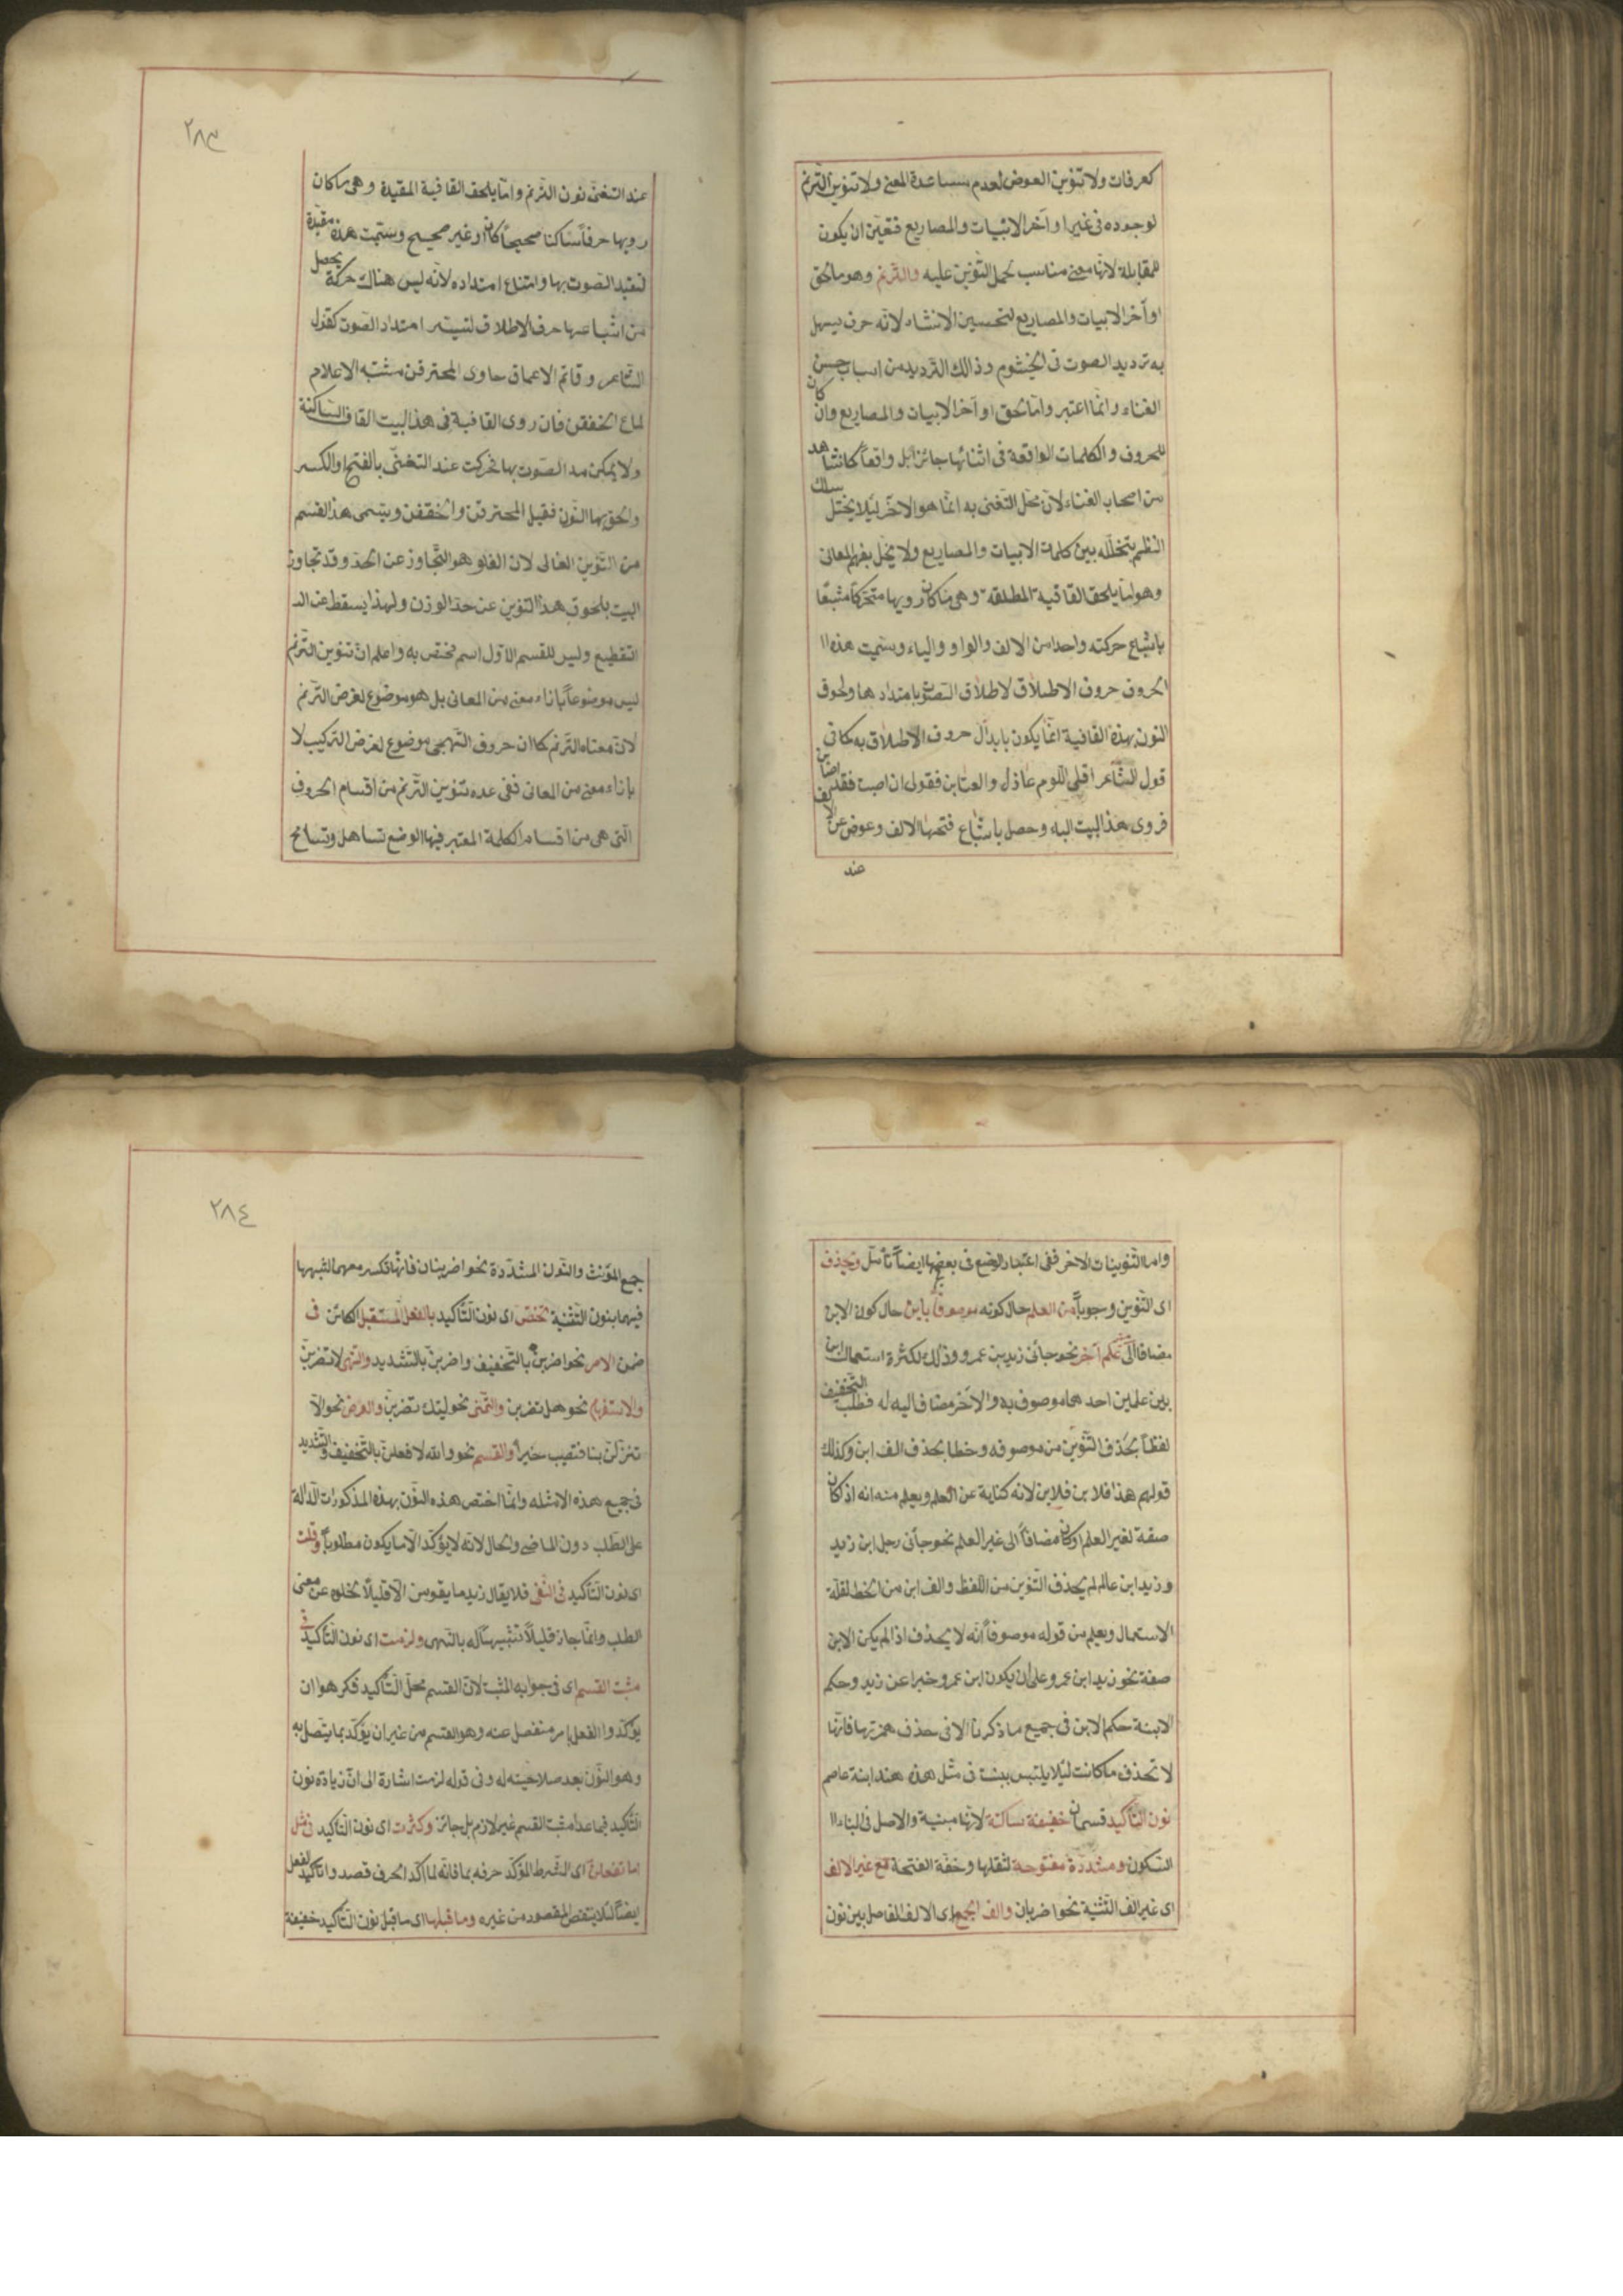 كعرفات ولا تنوين العوض لعدم مساعدة المعنى ولا تنوين الترنم
لوجوده فى غير اواخر الابيات والمصاريع فتعين ان يكون
للمقابلة لانها معنى مناسب لحمل التنوين عليه والترنم وهو مالحق
اواخر الابيات والمصاريع لتحسين الانشاد لانه حرف يسهل
به ترديد الصوت فى الخيشوم وذالك الترديد من اسباب حسن
الغناء وانما اعتبر وامالحق اواخر الابيات والمصاريع وان كان
للحروف والكلمات الواقعة فى اثنائها جائزا بل واقعاً كما نشاهد
من اصحاب الغناء لان محل التغنى به انما هو الاخر ليلا يختل سلك
النظم بتخلله بين كلمات الابيات والمصاريع ولا يخل بفهم المعانى
وهو اما يلحق القافية المطلقة وهى ما كان رويها متحركاً مشبعًا
باشباع حركته واحد من الالف والواو والياء وسميت هذه ا
الحروف حروف الاطلاق لاطلاق الصوت بامتدادها ولحوق
النون بهذه القافية انما يكون بابدال حروف الاطلاق به كما فى
قول الشاعر اقلى اللوم عاذل والعتابن فقولى ان اصبت فقد اصابن
فروى هذا البيت الباء وحصل باشباع فتحها الالف وعوض عن الالف
عند
٢٨٣
عند التغنى نون الترنم واما يلحق القافية المقيدة وهى ما كان
رويها حرفاً ساكنا صحيحاً كان او غير صحيح وسميت هذه مقيدة
لتقيد الصوت بها وامتناع امتداده لانه ليس هناك حركة يحصل
من اشباعها حرف الاطلاق لتيسير امتداد الصوت كقول
الشاعر وقاتم الاعماق حاوى المخترقن مشتبه الاعلام
لماع الخفقن فان روى القافية فى هذا البيت القاف الساكنة
ولا يمكن مد الصوت بها فحركت عند التغنى بالفتح او الكسر
والحق بها النون فقيل المخترقن والخفقن ويسمى هذا القسم
من التنوين الغالى لان الغلو هو التجاوز عن الحد وقد تجاوز
البيت بلحوق هذا التنوين عن حد الوزن ولهذا يسقط عند
التقطيع وليس للقسم الاول اسم مختص به واعلم ان تنوين الترنم
ليس موضوعاً بازاء معنى من المعانى بل هو موضوع لغرض الترنم
لان معناه الترنم كما ان حروف التهجى موضوع لغرض التركيب لا
بازاء معنى من المعانى ففى عده تنوين الترنم من اقسام الحروف
التى هى من اقسام الكلمة المعتبر فيها الوضع تساهل وتسامح
واما التنوينات الاخر ففى اعتبار الوضع فى بعضها ايضاً تأمل ويحذف
اى التنوين وجوباً من العلم حال كونه موصوفاً بابن حال كون الابن
مضافا الى علم آخر نحو جائنى زيد بن عمرو وذلك لكثرة استعمال ابن
بين علمين احدهما موصوف به والآخر مضاف اليه له فطلب التخفيف
لفظاً بحذف التنوين من موصوفه وخطا بحذف الف ابن وكذلك
قولهم هذا فلان بن فلان لانه كناية عن العلم ويعلم منه انه اذا كان
صفة لغير العلم او كان مضافاً الى غير العلم نحو جائنى رجل ابن زيد
وزيد ابن عالم لم يحذف التنوين من اللفظ والف ابن من الخط لقلة
الاستعمال ويعلم من قوله موصوفاً انه لا يحذف اذا لم يكن الابن
صفة نحو زيد ابن عمرو على ان يكون ابن عمرو خبرا عن زيد وحكم
الابنة حكم الابن فى جميع ما ذكرنا الا فى حذف همزتها فانها
لا تحذف ما كانت ليلا يلتبس ببنت فى مثل هذه هند ابنة عاصم
نون التأكيد قسمان خفيفة ساكنة لانها مبنية والاصل فى البناء ا
السكون ومشددة مفتوحة لثقلها وخفة الفتحة مع غير الالف
اى غير الف التثنية نحو اضربان والف الجمع اى الالف الفاصل بين نون
٢٨٤
جمع المؤنث والنون المشددة نحو اضربنان فانها تكسر معهما لشبهها
فيهما بنون التثنية تختص اى نون التاكيد بالفعل المستقبل الكائن فى
ضمن الامر نحو اضربن بالتخفيف واضربن بالتشديد والنهى لا تضربن
والاستفهام نحو هل تضربن والتمنى نحو ليتك تضربن والعرض نحو الا
تنزلن بنا فتصيب خيراً والقسم نحو والله لا فعلن بالتخفيف والتشديد
فى جميع هذه الامثله وانما اختص هذه النون بهذه المذكورات الدالة
على الطلب دون الماضى والحال لانه لا يؤكد الا ما يكون مطلوباً وقلت
اى نون التأكيد فى النفى فلا يقال زيد ما يقومن الا قليلاً لخلوه عن معنى
الطلب وانما جاز قليلاً تشبيها له بالنهى ولزمت اى نون التأكيد فى
مثبت القسم اى فى جوابه المثبت لان القسم محل التأكيد فكرهوا ان
يؤكدوا الفعل بامر منفصل عنه وهو القسم من غير ان يؤكد بما يتصل به
وهو النون بعد صلاحيته له وفى قوله لزمت اشارة الى ان زيادة نون
التأكيد فيما عدا مثبت القسم غير لازم بل جائز وكثرت اى نون التأكيد فى مثل
اما تفعلن اى الشرط المؤكد حرفه بما فانه لما اكد الحرف قصدوا تاكيد الفعل
ايضاً لئلا ينتقص المقصود من غيره وما قبلها اى ما قبل نون التأكيد خفيفة